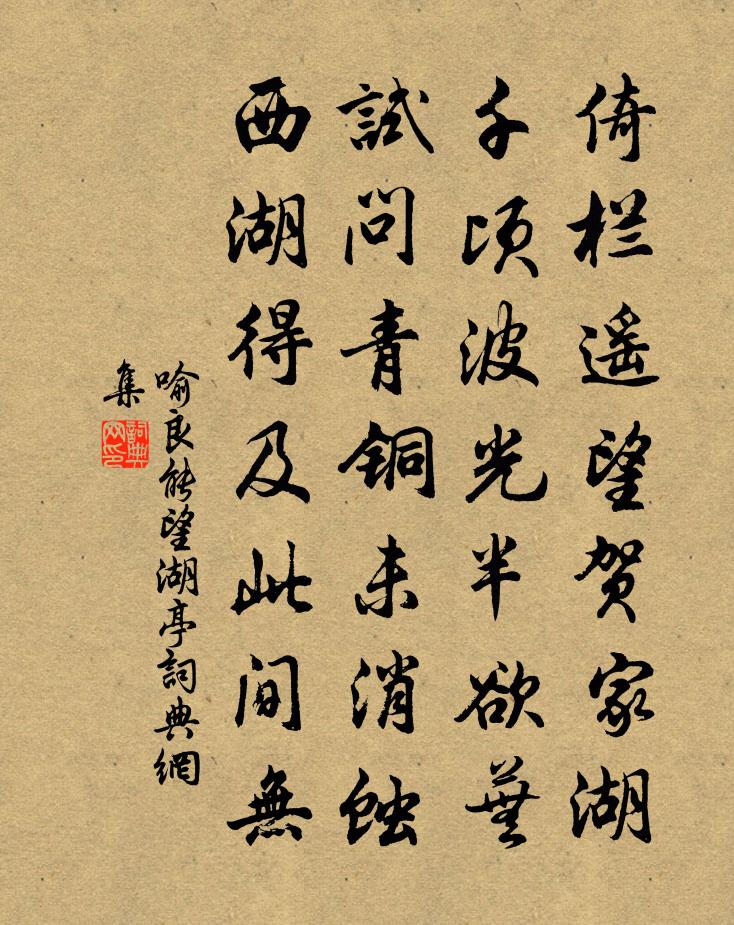 倚栏遥望贺家湖
千顷波光半欲芜
試问青铜未消蚀
西湖得及此间無
喻良能望湖亭詞典網
集
詞典
网印